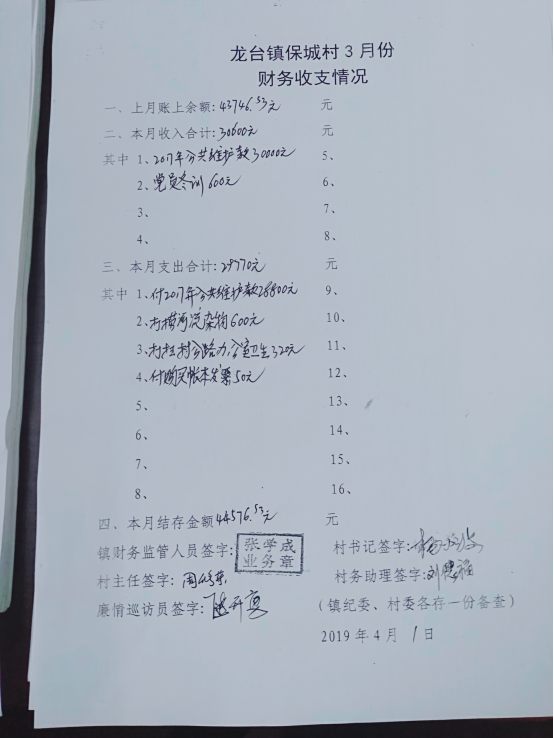 龙台镇保城村 3 月份
财务收支情况
一、上月账上余额:43746.53元 元
二、本月收入合计:30600元 元
其中 1、2017年公共维护款30000元 5、
2、党员冬训600元 6、
3、 7、
4、 8、
三、本月支出合计:29770元 元
其中 1、付2017年公共维护款28800元 9、
2、付 河 杂物600元 10、
3、付 村公路 办公室卫生320元 11、
4、付购买帐本发票50元 12、
5、 13、
6、 14、
7、 15、
8、 16、
四、本月结存金额44576.53元 元
镇财务监管人员签字: 张学成 村书记签字:
业务章
村主任签字:周 村务助理签字:刘
廉情巡访员签字: (镇纪委、村委各存一份备查)
2019 年 4 月 1 日